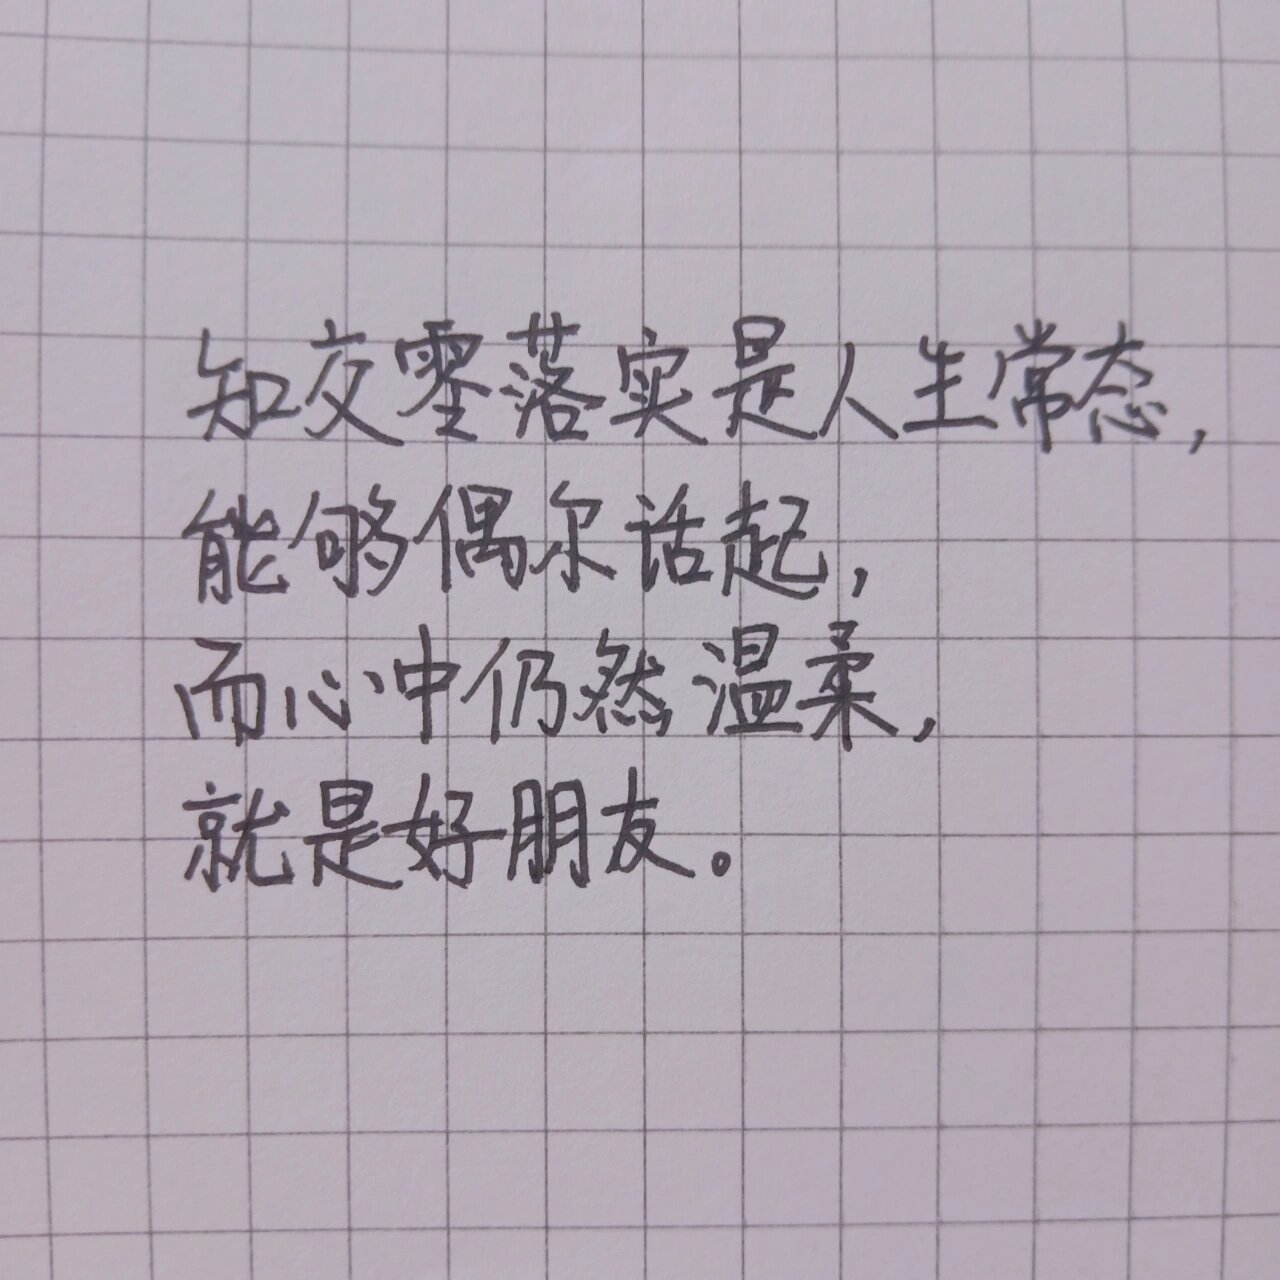 知交零落实是人生常态，
能够偶尔话起，
而心中仍然温柔，
就是好朋友。